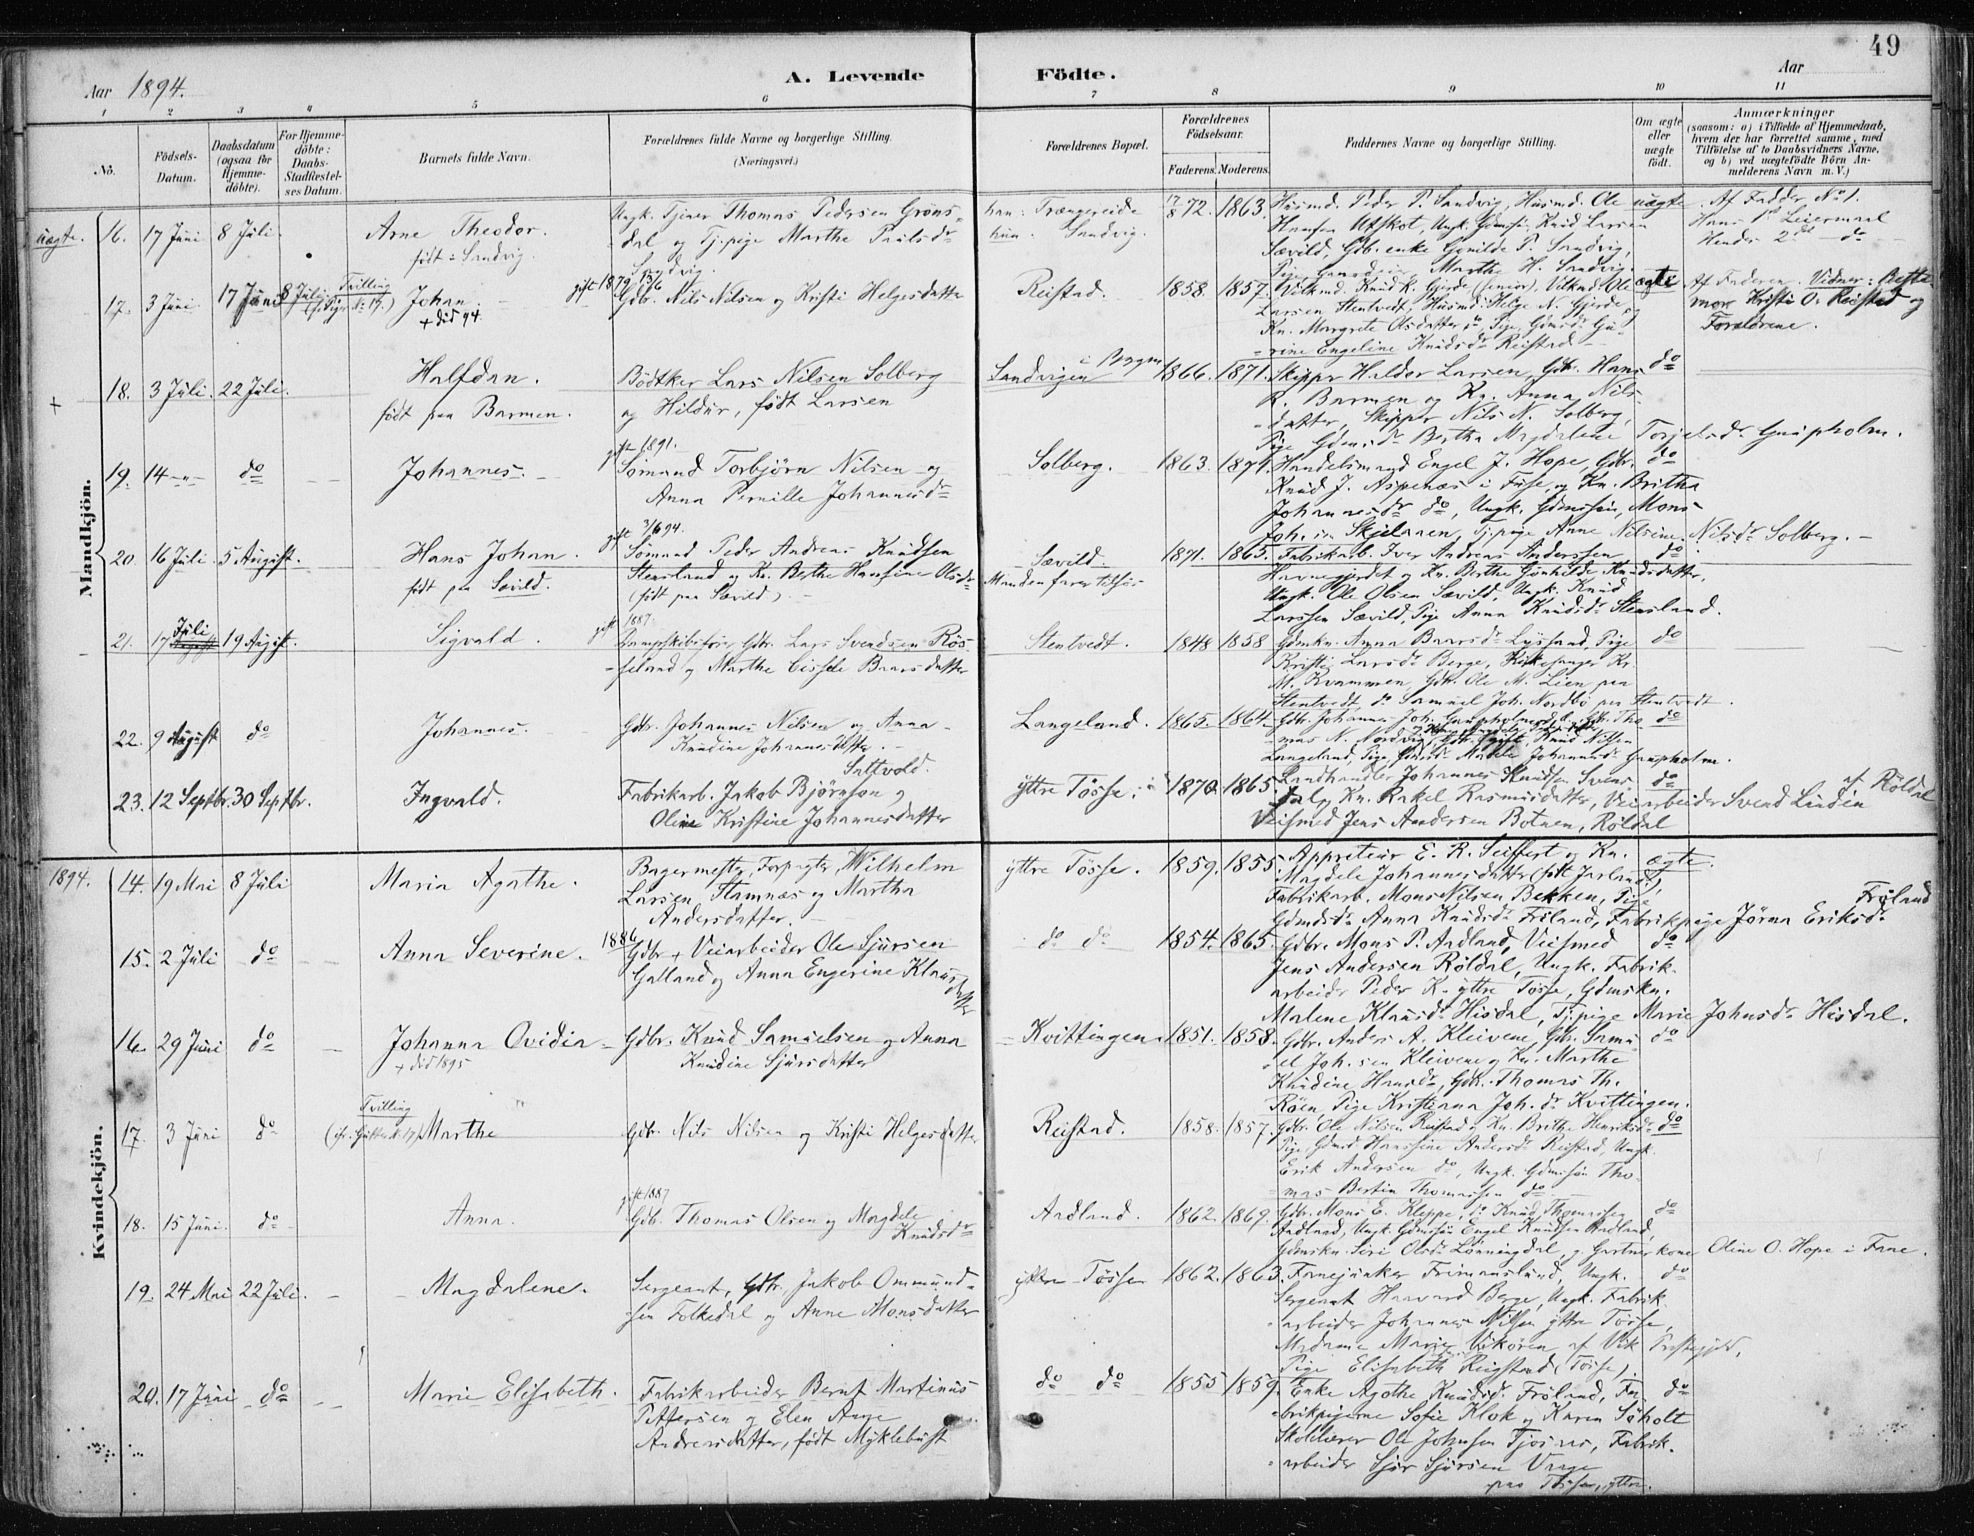 49
Aar 1894.
A. Levende Födte.
Aar
1 2 3 4 5 6 7 8 9 10 11
No.
Födsels-
Datum.
Daabsdatum
(ogsaa för
Hjemme-
döbte).
For Hjemme-
döbte:
Daabs-
Stadfæstel-
ses Datum.
Barnets fulde Navn.
Forældrenes fulde Navne og borgerlige Stilling.
(Næringsvei.)
Forældrenes Bopæl.
Forældrenes
Födselsaar.
Faderens. Moderens.
Faddernes Navne og borgerlige Stilling.
Om ægte
eller
uægte
födt.
Anmærkninger
(saasom: a) i Tilfælde af Hjemmedaab,
hvem der har forrettet samme, med
Tilföielse af to Daabsvidners Navne,
og b) ved uægtefödte Börn An-
melderens Navn m. V.)
Mandkjön.
uægte. 16. 17 Juni 8 Juli. Arne Theodor.
født: Sandvig.
Ungk. Tjener Thomas Pedersen Gröns-
dal og Tj.pige Marthe Paulsdr
Sandvig.
han: Trængereide
hun: Sandvig.
17/8 72. 1863.
Husmd. Peder P. Sandvig, Husmd. Ole
Hansen Ufskot, Ungk. Gdmsön Knud Larsen
Sævild, Gdb. enke Gunilde P. Sandvig,
Marthe H. Sandvig.
uægte. Af Fadder No 1.
Hans 1ste Leiermaal
Hendes 2det do
17. 3 Juni 17 Juni 8 Juli Tvilling
Johan.
+ död 94.
gift 1879
Gdb. Nils Nilsen og Kristi Helgesdatter
Reistad. 1858. 1857.
Vilkmd. Knud K. Gjerde (senior), Vilkmd. Ole
Larsen Stentvedt, Husmd. Helge N. Gjerde,
Kn. Margrete Olsdatter do, Pige Gdmsdr Gu-
rine Engeline Knudsdr Reistad
ægte
Af Faderen. Vidner: Beste-
mor Kristi O. Reistad og
Forældrene.
18. 3 Juli. 22 Juli. Halfdan.
født paa Barmen.
Bödtker Lars Nilsen Solberg
og Hildur, født Larsen
Sandvigen i Bergen 1866. 1871.
Skipper Haldor Larsen, Gdb. Hans
R. Barmen og Kn. Anna Nils-
datter, Skipper Nils N. Solberg,
Pige Gdmsdr Bertha Magdalene Torjelsdr Gunpholm.
do
19. 14 do Johannes.
gift 1891.
Sömand Torbjörn Nilsen og
Anna Pernille Johannesdr
Solberg. 1863. 1871.
Handelsmand Engel J. Hope, Gdb.
Knud J. Aspenæs i Fuse og Kn. Britha
Johannesdr do, Ungk. Gdmssön, Mons
Joh.sen Skjelanen, Tj.pige Anne Nilsine Nilsdr Solberg.
do
20. 16 Juli. 5 August. Hans Johan.
født paa Sævild.
gift 3/6 94.
Sömand Peder Andreas Knudsen
Stensland og Kn. Berthe Hansine Olsdr
(født paa Sævild).
Sævild.
Manden farer tilsjös
1871. 1865.
Fabrikarb. Iver Andreas Anderssen
Havnegjerdet og Kn. Berthe Gunhilde Knudsdatter,
Ungk. Ole Olsen Sævild, Ungk. Knud
Larssen Sævild, Pige Anna Knudsdr Stensland.
do
21. 17 Juli 19 August. Sigvald.
gift 1887.
Dampskibsförer, Gdb. Lars Svendsen Rös-
seland og Marthe Cissele Baarsdatter
Stentvedt. 1848 1858
Gdmkn. Anna Baarsdr Lyssand, Pige
Kristi Larsdr Berge, Kirkesanger Kr.
M. Kvammen, Gdb. Ole M. Lien paa
Stentvedt, do Samuel Joh. Nordbö paa Stentvedt.
do
22. 9 August do Johannes.
Gdb. Johannes Nilsen og Anna
Knudine Johannesdatter.
Langeland. 1865. 1864.
Gdb. Johannes Joh. Gunpholmen, Gdb. Tho-
mas N. Nordvig, Knud Nilsen
Langeland, Pige Gdmsdr Marthe Johannesdr Gunpholm.
do
23. 12 Septbr. 30 Septbr. Ingvald.
Saltvold.
Fabrikarb. Jakob Björnson og
Oline Kristine Johannesdatter
yttre Tösse. 1870. 1865.
Landhandler Johannes Knudsen Svens-
dal, Kn. Rakel Rasmusdatter, Veiarbeider Svend Lindin af Röldal
Veifmed Jens Andersen Botnen, Röldal
do
1894.
Kvindekjön.
14. 19 Mai 8 Juli Maria Agathe.
Bagermester, Forpagter, Wilhelm
Larsen, Stamnæs og Martha
Andersdatter.
yttre Tösse. 1859. 1855.
Appreteur E. R. Seiffert og Kn.
Magdele Johannesdatter (født Jarland),
Fabrikarb. Mons Nilsen Bekken, Pige
Gdmdsdr Anna Knudsdr Fröland, Fabrikpige Jörna Eriksdr Fröland
ægte.
15. 2 Juli do Anna Severine.
1886
Gdbr + Veiarbeider Ole Sjursen
Galland og Anna Engerine Klausdatter
do do 1854. 1865.
Gdbr. Mons P. Aadland, Veifmed
Jens Andersen Röldal, Ungk. Fabrik-
arbeider Peder K. yttre Tösse, Gdmskn.
Malene Klausdr Hisdal, Tj.pige Marie Johnsdr Hisdal.
do
16. 29 Juni do Johanna Ovidia
+ död 1895
Gdbr. Knud Samuelsen og Anna
Knudine Sjursdatter
Kvittingen. 1851. 1858.
Gdbr. Anders A. Kleivene, Gdbr. Samu-
el Joh.sen Kleivene og Kn. Marthe
Knudine Hansdr, Gdb. Thomas Th.
Röen, Pige Kristianna Joh.dr Kvittingen.
do
17. 3 Juni do Tvilling
(cfr. Gutter No 17) Marthe
Gdb. Nils Nilsen og Kristi Helgesdatter
Reistad. 1858. 1857.
Gdbr. Ole Nilsen Reistad og Kn. Brithe Henriksdr
Pige, Gdmsd Hanssine Andersdr Reistad, Ungk.
Erik Andersen do, Ungk. Gdmsön Tho-
mas Bertin Thomassen do
do
18. 15 Juni. do Anna.
gift 1887
Gdb. Thomas Olsen og Magdele
Knudsdr
Aadland. 1862. 1869.
Gdb. Mons E. Kleppe, do Knud Thomassen
Aadland, Ungk. Gdmssön Engel Knudsen Aadland,
Gdmskn. Siri Olsdr Lönningdal, og Gartner kone Oline O. Hope i Fane.
do
19. 24 Mai 22 Juli. Magdalene.
Sergeant, Gdbr. Jakob Ommund-
sen Folkedal og Anne Monsdatter
yttre Tösse 1862. 1863.
Fanejunker Frimanslund, Ungk.
Sergeant Haavard Berge, Ungk. Fabrik-
arbeider Johannes Nilsen yttre Tösse,
Madame Marie Vikören af Vik Præstegjeld,
Pige Elisabeth Reigstad (Tösse).
do
20. 17 Juni do Marie Elisabeth.
Fabrikarbeider Bernt Martinus
Pettersen og Elen Aage
Andreasdatter, født Myklebust
do do 1855 1859.
Enke Agathe Knudsd. Fröland, Fa-
brikpigerne Sofie Klok og Karen Söholt
Skolelærer Ole Johnsen Tjosaas, Fabrik-
arbeider Sjur Sjursen Vaage
paa Tösse, yttre.
do